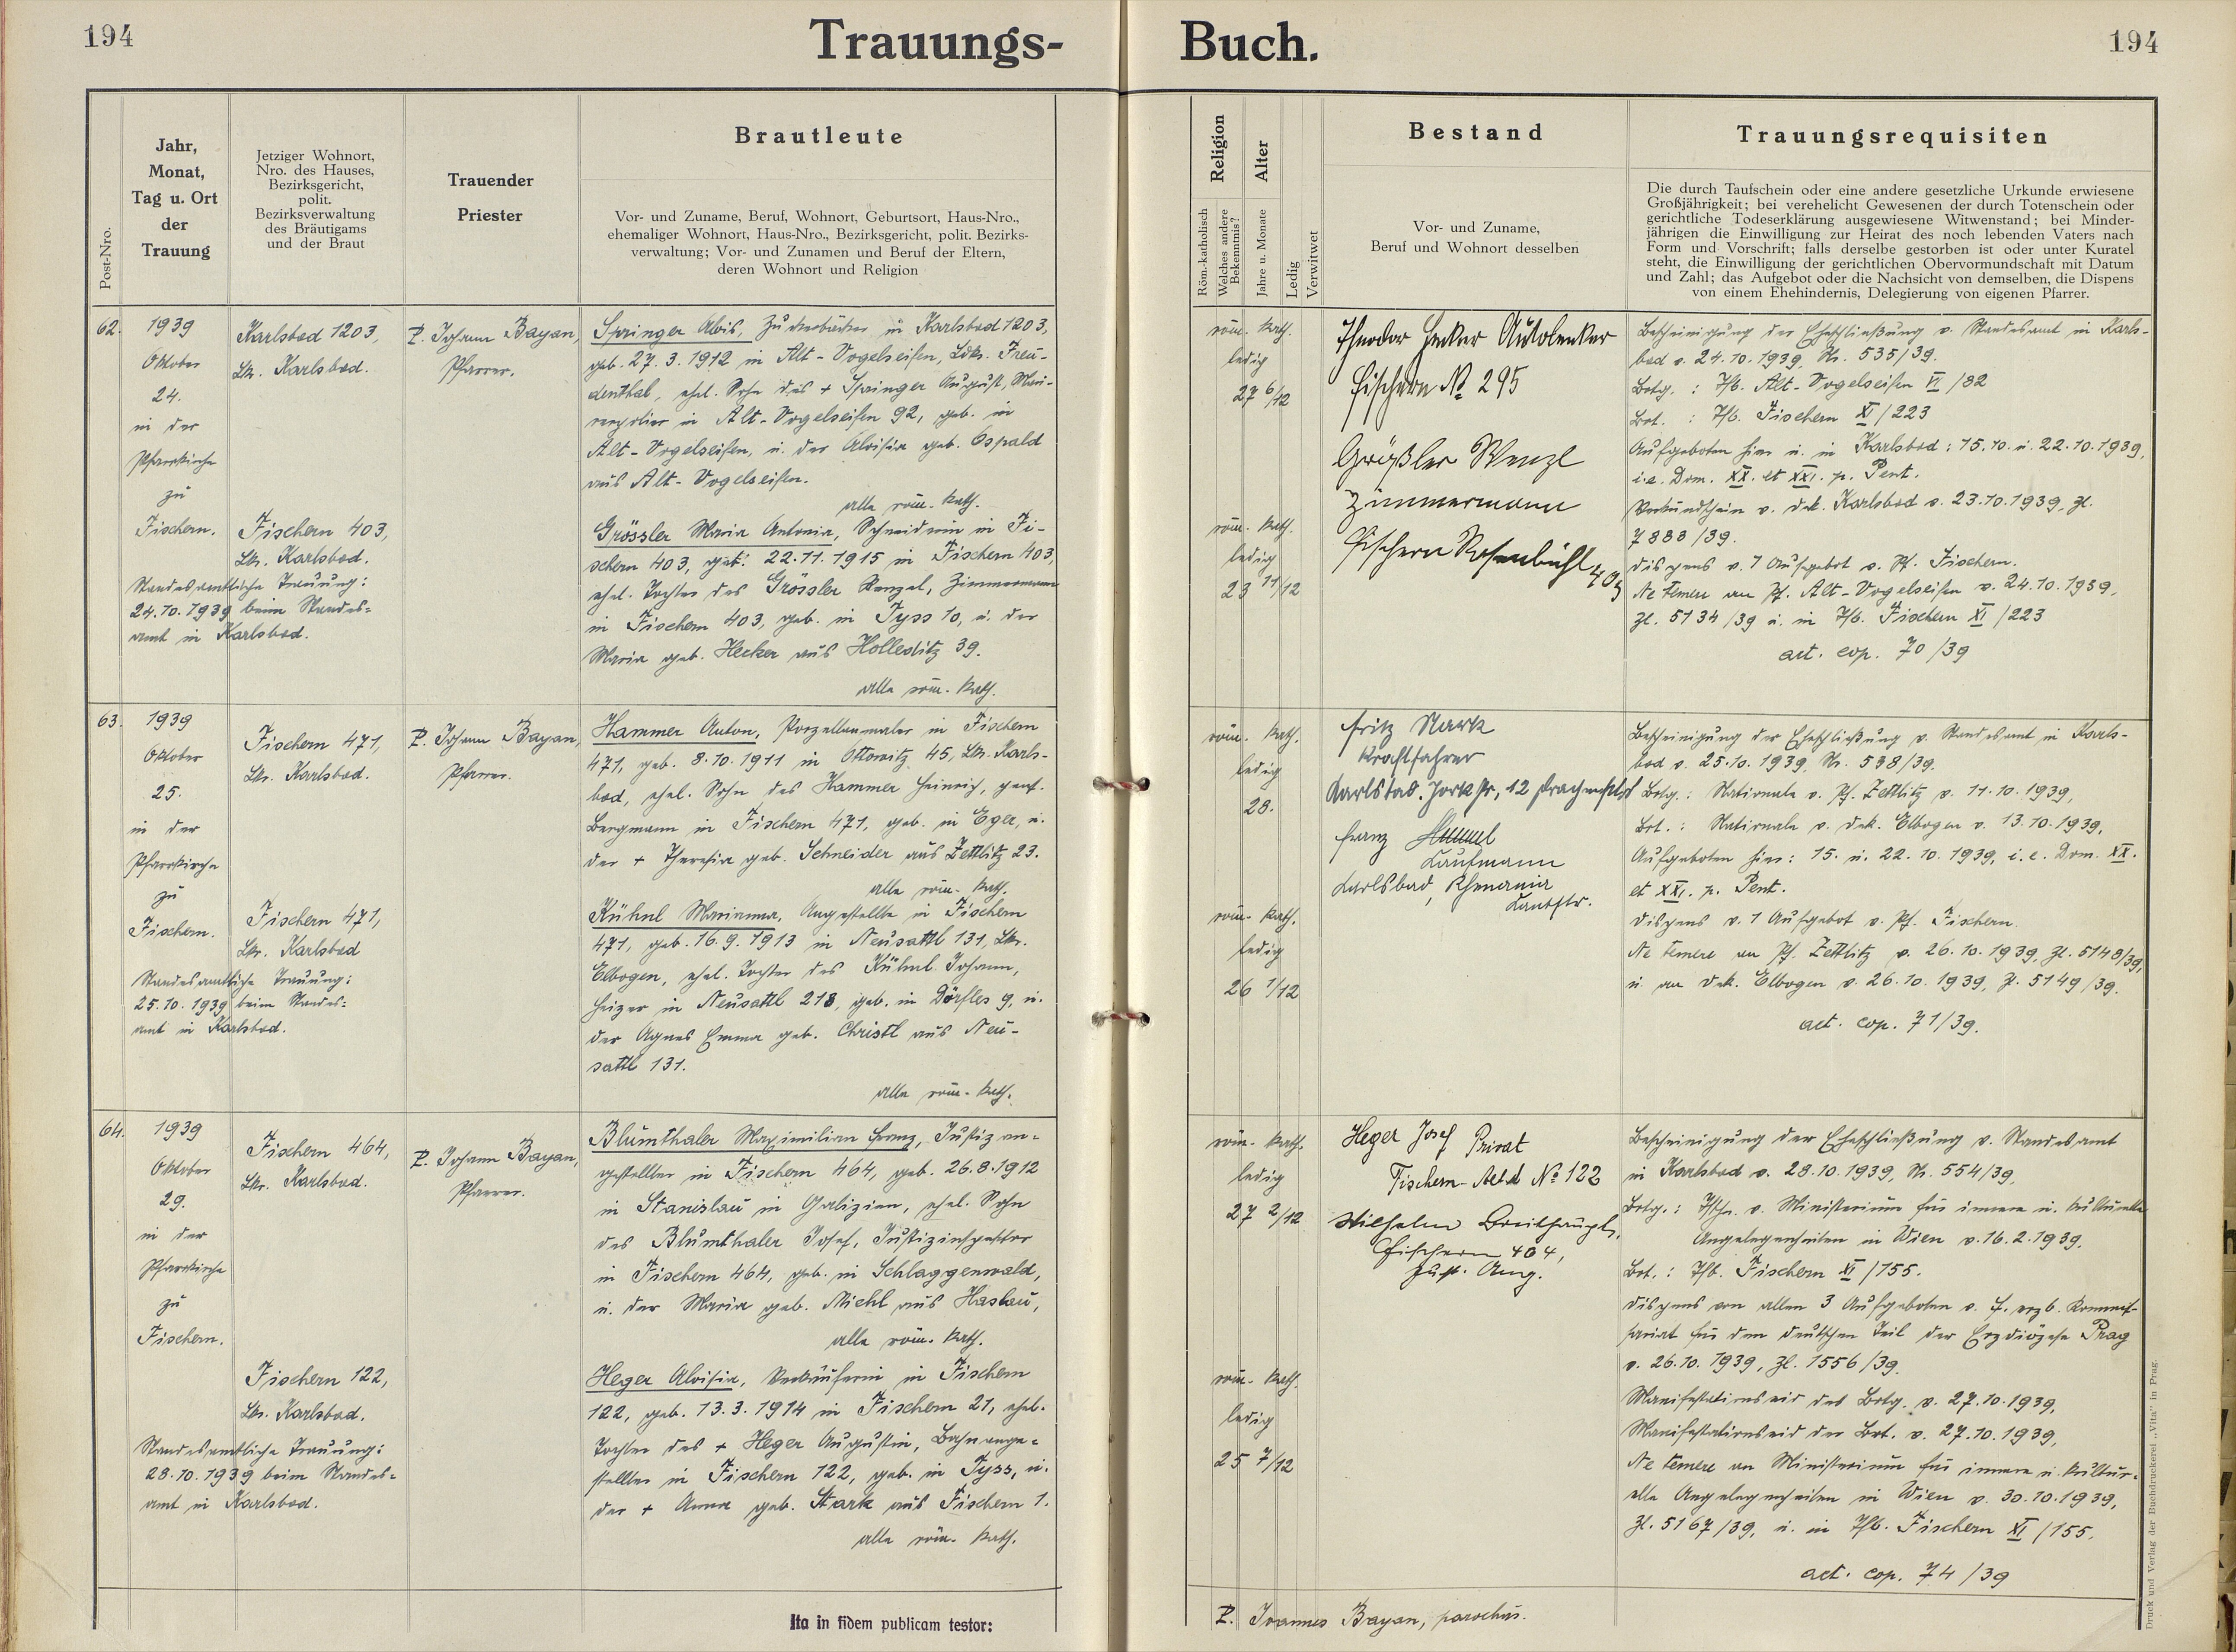 194
Trauungs-
Buch.
194
Post-Nro.
Jahr,
Monat,
Tag u. Ort
der
Trauung
Jetziger Wohnort,
Nro. des Hauses,
Bezirksgericht,
polit.
Bezirksverwaltung
des Bräutigams
und der Braut
Trauender
Priester
Brautleute
Vor- und Zuname, Beruf, Wohnort, Geburtsort, Haus-Nro.,
ehemaliger Wohnort, Haus-Nro., Bezirksgericht, polit. Bezirks-
verwaltung; Vor- und Zunamen und Beruf der Eltern,
deren Wohnort und Religion
Religion
Röm.-katholisch
Welches andere
Bekenntnis?
Alter
Jahre u. Monate
Ledig
Verwitwet
Bestand
Vor- und Zuname,
Beruf und Wohnort desselben
Trauungsrequisiten
Die durch Taufschein oder eine andere gesetzliche Urkunde erwiesene
Großjährigkeit; bei verehelicht Gewesenen der durch Totenschein oder
gerichtliche Todeserklärung ausgewiesene Witwenstand; bei Minder-
jährigen die Einwilligung zur Heirat des noch lebenden Vaters nach
Form und Vorschrift; falls derselbe gestorben ist oder unter Kuratel
steht, die Einwilligung der gerichtlichen Obervormundschaft mit Datum
und Zahl; das Aufgebot oder die Nachsicht von demselben, die Dispens
von einem Ehehindernis, Delegierung von eigenen Pfarrer.
62.
1939
Oktober
24.
in der
Pfarrkirche
zu
Fischern.
Standesamtliche Trauung:
24.10.1939 beim Standes=
amt in Karlsbad.
Karlsbad 1203,
Lkr. Karlsbad.
Fischern 403,
Lkr. Karlsbad.
P. Johann Bayan,
Pfarrer.
Springer Alois, Zuckerbäcker in Karlsbad 1203,
geb. 27.3.1912 in Alt-Vogelseifen, Ldkr. Freu-
denthal, ehel. Sohn des + Springer August, Mau-
rerpolier in Alt-Vogelseifen 92, geb. in
Alt-Vogelseifen, u. der Aloisia geb. Ospald
aus Alt-Vogelseifen.
alle röm. kath.
Grössler Maria Antonia, Schneiderin in Fi-
schern 403, geb. 22.11.1915 in Fischern 403,
ehel. Tochter des Grössler Wenzel, Zimmermann
in Fischern 403, geb. in Tyss 10, u. der
Maria geb. Hecker aus Holleditz 39.
alle röm. kath.
röm. kath.
ledig
27 6/12
röm. kath.
ledig
23 11/12
Theodor Hecker Autolenker
Fischern No 295
Größler Wenzl
Zimmermann
Fischern Rosenbühl 403
Bescheinigung der Eheschließung v. Standesamt in Karls-
bad v. 24.10.1939, Nr. 535/39.
Brtg.: Tfb. Alt-Vogelseifen VI/82
Brt.: Tfb. Fischern XI/223
Aufgeboten hier u. in Karlsbad: 15.10. u. 22.10.1939,
i.e. Dom. XX. et XXI. p. Pent.
Verkündschein v. Dek. Karlsbad v. 23.10.1939, Zl.
7888/39.
Dispens v. 1 Aufgebot v. Pf. Fischern.
Ne temere an Pf. Alt-Vogelseifen v. 24.10.1939,
Zl. 5134/39 u. in Tfb. Fischern XI/223
act. cop. 70/39
63.
1939
Oktober
25.
in der
Pfarrkirche
zu
Fischern.
Standesamtliche Trauung:
25.10.1939 beim Standes=
amt in Karlsbad.
Fischern 471,
Lkr. Karlsbad.
Fischern 471,
Lkr. Karlsbad
P. Johann Bayan,
Pfarrer.
Hammer Anton, Porzellanmaler in Fischern
471, geb. 8.10.1911 in Ottowitz 45, Lkr. Karls-
bad, ehel. Sohn des Hammer Heinrich, pens.
Bergmann in Fischern 471, geb. in Eger, u.
der + Theresia geb. Schneider aus Zettlitz 23.
alle röm. kath.
Kühnl Marianna, Angestellte in Fischern
471, geb. 16.9.1913 in Neusattl 131, Lkr.
Elbogen, ehel. Tochter des Kühnl Johann,
Heizer in Neusattl 218, geb. in Dörfles 9, u.
der Agnes Emma geb. Christl aus Neu-
sattl 131.
alle röm. kath.
röm. kath.
ledig
28.
röm. kath.
ledig
26 1/12
Fritz Mark
Kraftfahrer
Karlsbad.
Franz
Kaufmann
Karlsbad, Rhenania
Bescheinigung der Eheschließung v. Standesamt in Karls-
bad v. 25.10.1939, Nr. 538/39.
Brtg.: Nationale v. Pf. Zettlitz v. 11.10.1939,
Brt.: Nationale v. Dek. Elbogen v. 13.10.1939,
Aufgeboten hier: 15. u. 22.10.1939, i.e. Dom. XX.
et XXI. p. Pent.
Dispens v. 1 Aufgebot v. Pf. Fischern.
Ne temere an Pf. Zettlitz v. 26.10.1939, Zl. 5148/39,
u. an Dek. Elbogen v. 26.10.1939, Zl. 5149/39.
act. cop. 71/39.
64.
1939
Oktober
29.
in der
Pfarrkirche
zu
Fischern.
Standesamtliche Trauung:
28.10.1939 beim Standes=
amt in Karlsbad.
Fischern 464,
Lkr. Karlsbad.
Fischern 122,
Lkr. Karlsbad.
P. Johann Bayan,
Pfarrer.
Blumthaler Maximilian Franz, Justizan=
gestellter in Fischern 464, geb. 26.8.1912
in Stanislau in Galizien, ehel. Sohn
des Blumthaler Josef, Justizinspektor
in Fischern 464, geb. in Schlaggenwald,
u. der Maria geb. Michl aus Haslau,
alle röm. kath.
Heger Aloisia, Verkäuferin in Fischern
122, geb. 13.3.1914 in Fischern 21, ehel.
Tochter des + Heger Augustin, Bahnange=
stellter in Fischern 122, geb. in Tyss, u.
der + Anna geb. Stark aus Fischern 1.
alle röm. kath.
röm. kath.
ledig
27 2/12
röm. kath.
ledig
25 7/12
Heger Josef Privat
Fischern No 122
Wilhelm Breithaupt,
Fischern 404,
Just. Ang.
Bescheinigung der Eheschließung v. Standesamt
in Karlsbad v. 28.10.1939, Nr. 554/39,
Brtg.: Tfsch. v. Ministerium für innere u. kulturelle
Angelegenheiten in Wien v. 16.2.1939.
Brt.: Tfb. Fischern XI/155.
Dispens von allen 3 Aufgeboten v. f. erzb. Kommis-
sariat für den deutschen Teil der Erzdiözese Prag
v. 26.10.1939, Zl. 1556/39.
Manifestationseid des Brtg. v. 27.10.1939,
Manifestationseid der Brt. v. 27.10.1939,
Ne temere an Ministerium für innere u. kultur-
elle Angelegenheiten in Wien v. 30.10.1939,
Zl. 5167/39, u. in Tfb. Fischern XI/155.
act. cop. 74/39
Ita in fidem publicam testor:
P. Joannes Bayan, parochus.
Druck und Verlag der Buchdruckerei „Vita" in Prag.